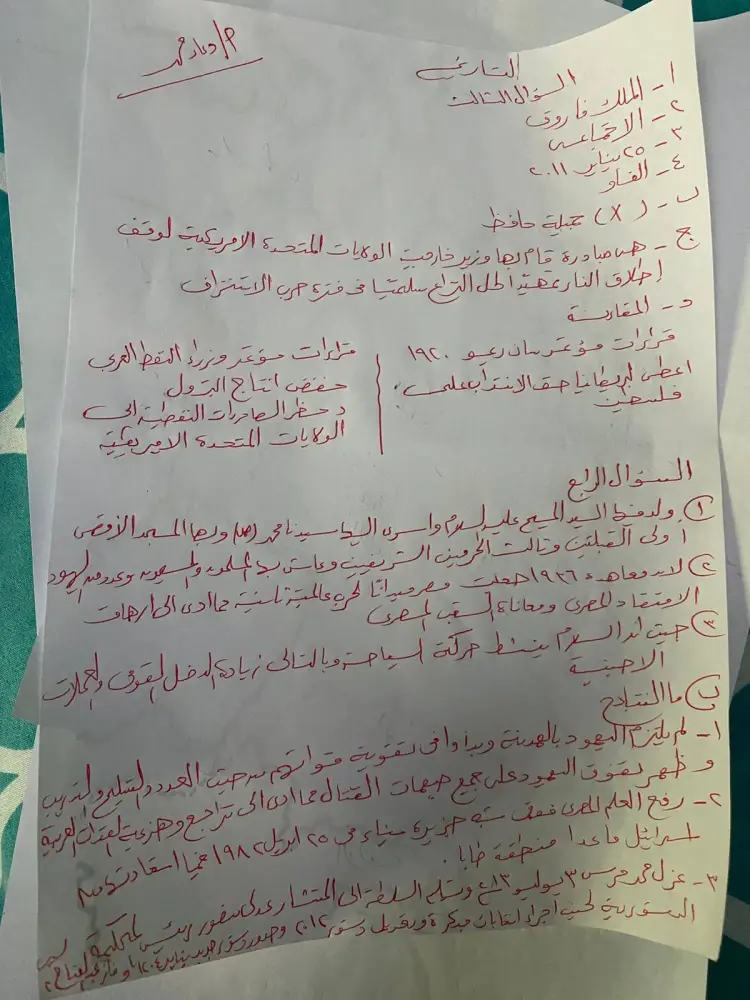 أ/ دعاء محمد
التاريخ
السؤال الثالث
١- الملك فاروق
٢- الاجتماعى
٣- ٢٥ يناير ٢٠١١
٤- الفاو
ب- (X) جميلة حافظ
ج- هى مبادرة قام بها وزير خارجية الولايات المتحدة الامريكية لوقف
إطلاق النار تمهيدا لحل النزاع سلميا فى فترة حرب الاستنزاف
د- المقارنة
قرارات مؤتمر سان ريمو ١٩٢٠
اعطى لبريطانيا حق الانتداب على
فلسطين
قرارات مؤتمر وزراء النفط العرب
خفض انتاج البترول
و حظر الصادرات النفطية الى
الولايات المتحدة الامريكية
السؤال الرابع
① ولد فيها السيد المسيح عليه السلام واسرى اليها سيدنا محمد (ص) وبها المسجد الأقصى
أولى القبلتين وثالث الحرمين الشريفين وعاش بها المسلمون والمسيحيون وعدد من اليهود
② لان معاهدة ١٩٣٦ جعلت مصر ميدانا لحرب عالمية ثانية مما ادى الى ارهاق
الاقتصاد المصرى ومعاناة الشعب المصرى
③ حيث ان السلام ينشط حركة السياحة وبالتالى زيادة الدخل القومى والعملات
الاجنبية
ب ما النتائج
١- لم يلتزم اليهود بالهدنة وبدأوا فى تقوية قواتهم من حيث العدد والتسليح والتدريب
و ظهر تفوق اليهود على جميع جبهات القتال مما ادى الى تراجع وهزيمة القوات العربية
٢- رفع العلم المصرى فوق شبه جزيرة سيناء فى ٢٥ ابريل ١٩٨٢ عيد استعادتها من
اسرائيل ما عدا منطقة طابا.
٣- عزل محمد مرسى ٣ يوليو ٢٠١٣ وتسليم السلطة الى المستشار عدلى منصور رئيس المحكمة
الدستورية لحين اجراء انتخابات مبكرة وتعديل دستور ٢٠١٢ وصدور دستور جديد يناير ٢٠١٤